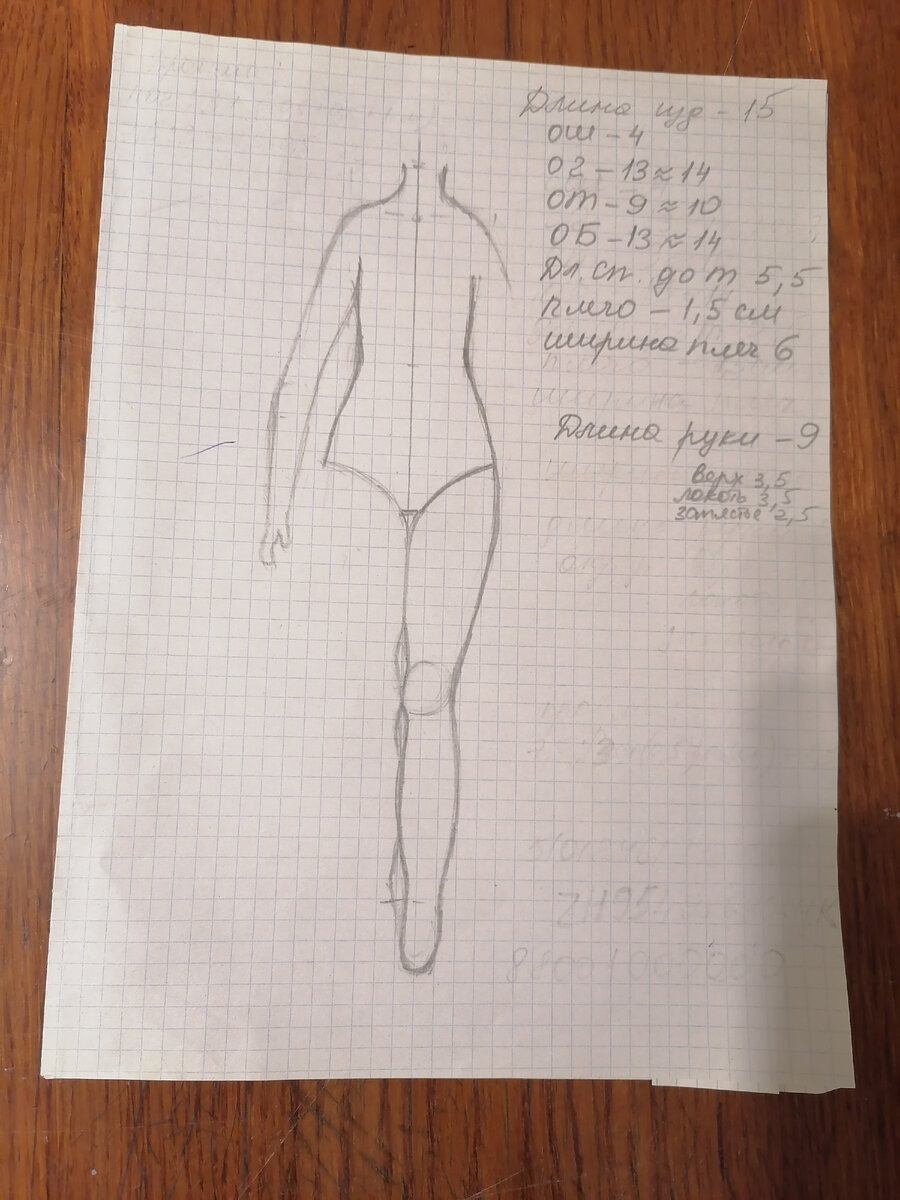 Длина изд - 15
ОШ - 4
ОГ - 13 ≈ 14
ОТ - 9 ≈ 10
ОБ - 13 ≈ 14
Дл. сп. до т 5,5
плечо - 1,5 см
ширина плеч 6
Длина руки - 9
верх 3,5
локоть 3,5
запястье 2,5